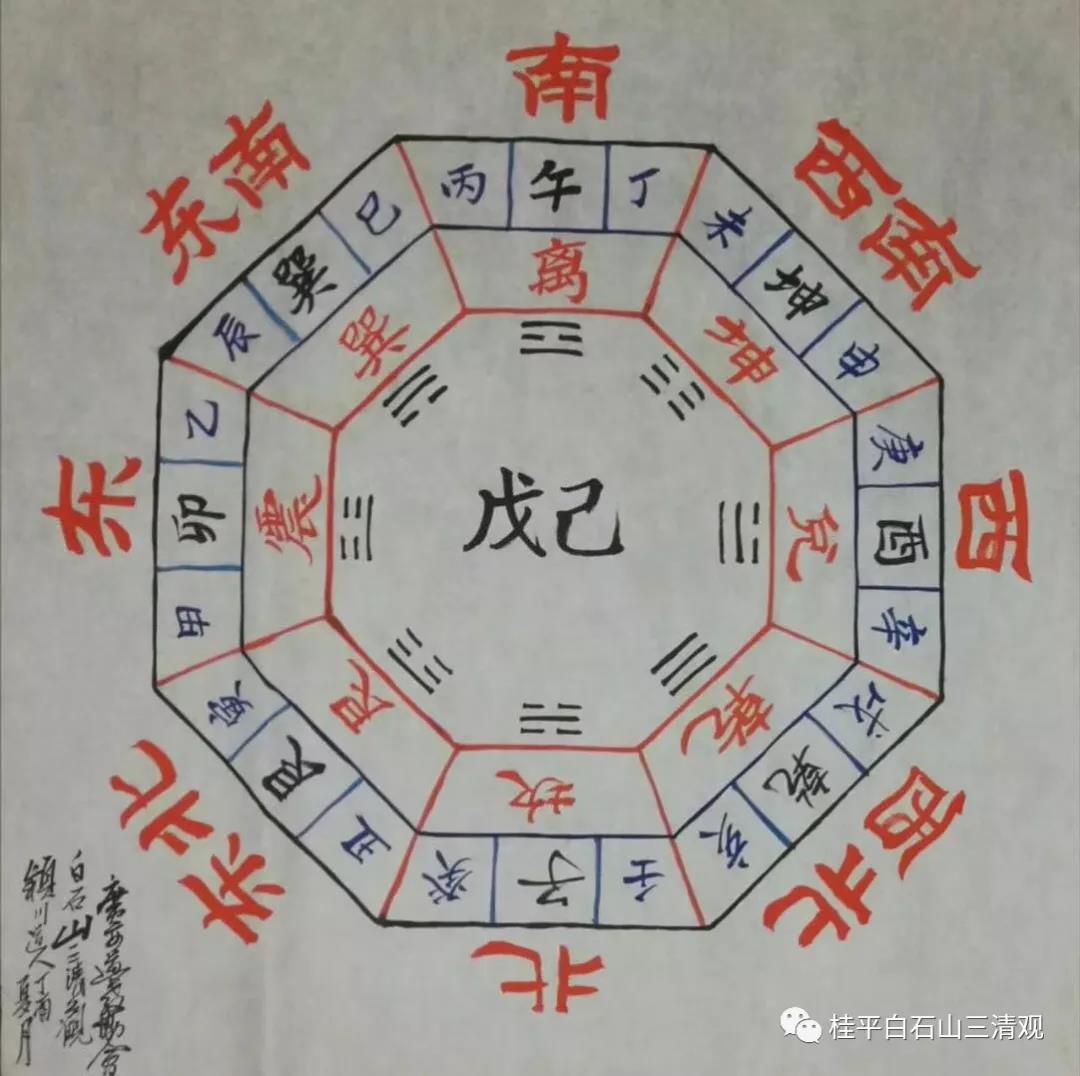 南
西南
西
西北
北
东北
东
东南
丙 午 丁
未 坤 申
庚 酉 辛
戌 乾 亥
壬 子 癸
丑 艮 寅
甲 卯 乙
辰 巽 巳
离
坤
兑
乾
坎
艮
震
巽
戊己
白石山三清观
道人丁酉
夏月
桂平白石山三清观